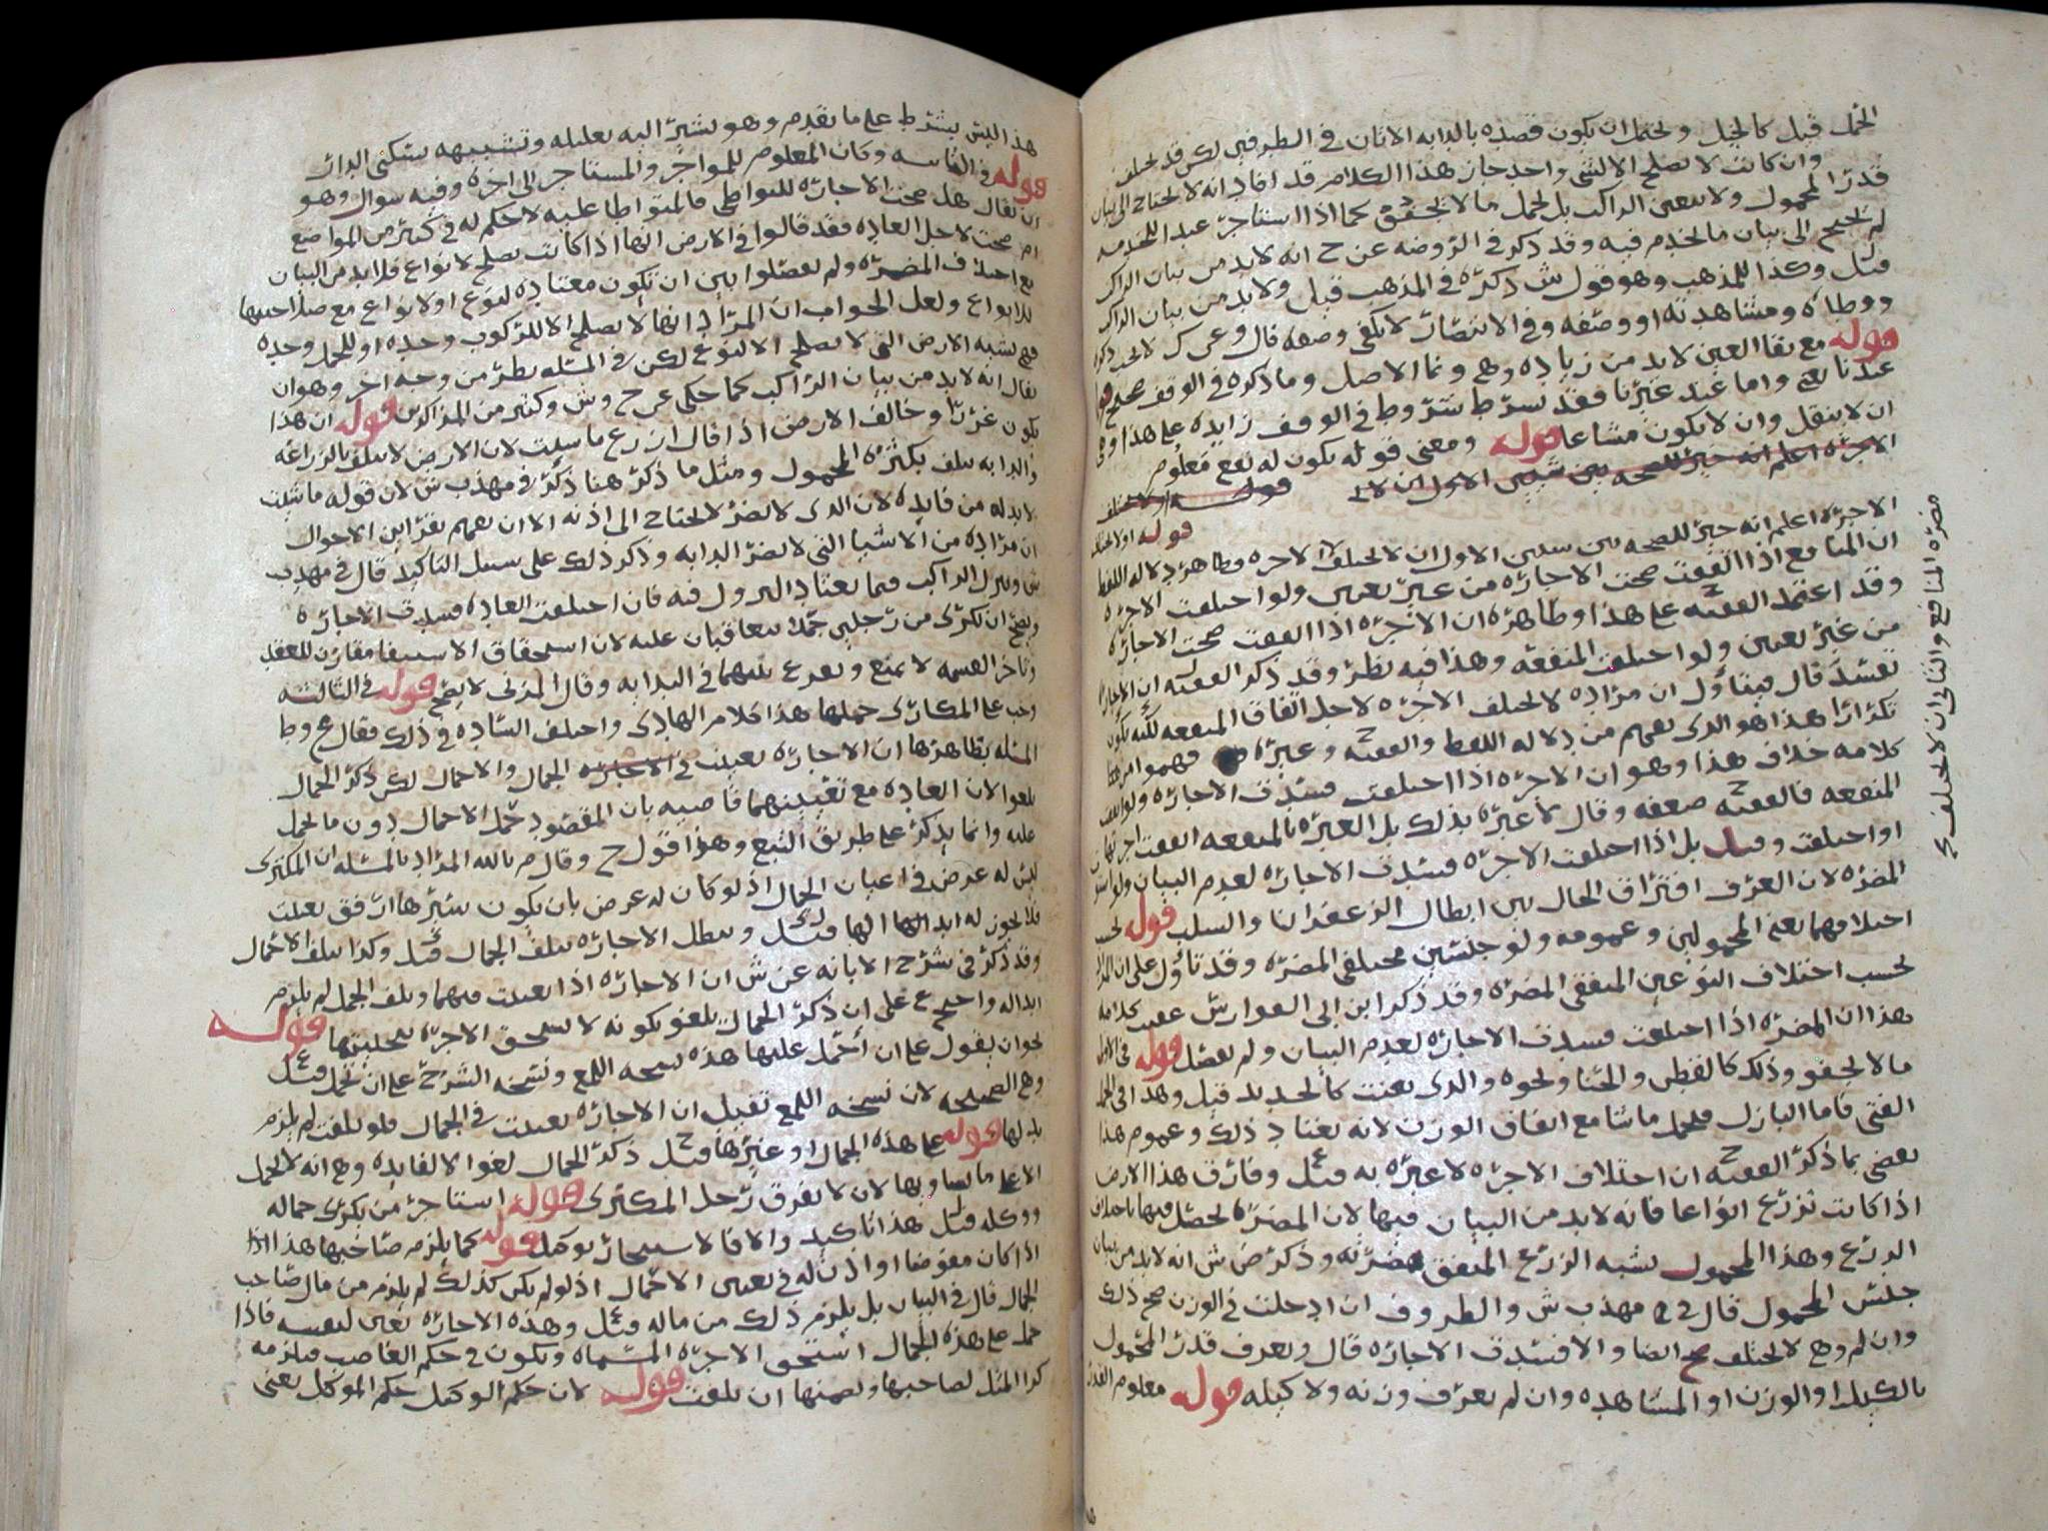 الحمل قيل كالخيل ويحتمل ان يكون قصده بالدابه الاتان في الطرفين لكن قد يختلف
وان كانت لا تصلح الا لشي واحد جاز هذا الكلام قد افاد انه لا يحتاج الى بيان
قدر المحمول ولا تعيين الراكب بل يحمل ما لا يجحف كما اذا استاجر عبدا للخدمه
لم يحتج الى بيان ما يخدم فيه وقد ذكر في الروضه عن ح انه لا بد من بيان الراكب
قيل وكذا للمذهب وهو قول ش ذكره في المذهب قيل ولا بد من بيان الراكب
ووطاه ومشاهدته او وصفه وفي الانتصار لا يكفي وصفه قال وعن ك لا يجب
قوله مع بقا العين لا بد من زياده وهي ونما الاصل وما ذكروه في الوقف صحيح
عندنا يعم واما عند غيرنا فقد شرط شروط في الوقف زايده على هذا وهي
ان لا ينقل وان لا يكون مشاعا قوله ومعنى قوله يكون له نفع معلوم
الاجره اعلم انه خير للصحه بين شيين الاول ان لا
قوله
الاجره اعلم انه خير للصحه بين شيين الاول ان لا تختلف الاجره وظاهر دلاله اللفظ
ان المنافع اذا اتفقت صحت الاجاره من غير تعيين ولو اختلفت الاجره
وقد اعتمد الفقيه ح على هذا وظاهره ان الاجره اذا اتفقت صحت الاجاره
من غير تعيين ولو اختلفت المنفعه وهذا فيه نظر وقد ذكر الفقيه ان الاجاره
تفسد قال فيتأول ان مراده لا تختلف الاجره لاجل اتفاق المنفعه لكنه يكون
تكرارا هذا هو الذي يفهم من دلاله اللفظ والفقيه ح وغيره فهموا من
كلامه خلاف هذا وهو ان الاجره اذا اختلفت فسدت الاجاره ولو اتفقت
المنفعه فالفقيه ح ضعفه وقال لا عبره بذلك بل العبره بالمنفعه اتفقت اجرتها
او اختلفت وقيل بل اذا اختلفت الاجره فسدت الاجاره لعدم البيان
المضره لان العرف افتراق الحال بين ابطال الزعفران والسلب قوله بحسب
اختلافهما يعني المحمولين وعمومه ولو جنسين مختلفي المضره وقد تاول على ان المراد
بحسب اختلاف النوعين المتفقي المضره وقد ذكر ابن ابي الفوارس عقيب كلامه
هذا ان المضره اذا اختلفت فسدت الاجاره لعدم البيان ولم يفصل قوله في الاول
ما لا يجحف وذلك كالقطن والحنا ونحوه والذي يعنت كالحديد قيل وهذا في الجمل
الفتى فاما البازل فيحمل ما شا مع اتفاق الوزن لانه يعتاد ذلك وعموم هذا
يقضي بما ذكر الفقيه ح ان اختلاف الاجره لا عبره به قيل وفارق هذا الارض
اذا كانت تزرع انواعا فانه لا بد من البيان فيها لان المضره تحصل فيها باختلاف
الزرع وهذا المحمول يشبه الزرع المتفق مضرته وذكر ض ش انه لا بد من بيان
جنس المحمول قال في مهذب ش والظروف ان ادخلت في الوزن صح ذلك
وان لم وهي لا تختلف صح ايضا والا فسدت الاجاره قال ويعرف قدر المحمول
بالكيل او الوزن او المشاهده وان لم يعرف وزنه ولا كيله قوله معلوم القدر
مضره المنافع والثاني ان لا تختلف
هذا ليس بشرط على ما تقدم وهو يشير اليه تعليله وتشبيهه بسكنى الدار
قوله في الثانيه وكان المعلوم للمواجر والمستاجر الى اخره وفيه سوال وهو
ان يقال هل صحت الاجاره للتواطي فالمتواطا عليه لا حكم له في كثير من المواضع
ام صحت لاجل العاده فقد قالوا في الارض انها اذا كانت تصلح لانواع فلا بد من البيان
مع اختلاف المضره ولم يفصلوا بين ان تكون معتاده لنوع او لانواع مع صلاحيتها
للانواع ولعل الجواب ان المراد انها لا تصلح الا للركوب وحده او للحمل وحده
فهي تشبه الارض التي لا تصلح الا لنوع لكن في المسله نظر من وجه اخر وهو ان
يقال انه لا بد من بيان الراكب كما حكي عن ح وش وكثير من المذاكرين قوله ان هذا
يكون غررا وخالف الارض اذا قال ازرع ما شيت لان الارض لا تتلف بالزراعه
والدابه تتلف بكثره المحمول ومثل ما ذكر هنا ذكر في مهذب ش لان قوله ما شيت
لا بد له من فايده لان الذي لا يضر لا يحتاج الى اذنه الا ان يفهم بقراين الاحوال
ان مراده من الاشيا التي لا تضر الدابه وذكر ذلك على سبيل التاكيد قال في مهذب
ش وينزل الراكب فيما يعتاد النزول فيه فان اختلفت العاده فسدت الاجاره
ويصح ان تكرى من رجلين جملا يتعاقبان عليه لان استحقاق الاستيفا مقارن للعقد
وتاخر القسمه لا يمنع ويقرع بينهما في البدايه وقال المزني لا يصح قوله في الثالثه
وجب على المكاري حملها هذا كلام الهادي واختلف الساده في ذلك فقال ع وط
المسله بظاهرها ان الاجاره تعينت في الاجاره الجمال والاحمال لكن ذكر الجمال
يلغوا لان العاده مع تعيينهما قاضيه بان المقصود حمل الاحمال دون ما يحمل
عليه وانما يذكر على طريق التبع وهذا قول ح وقال م بالله المراد بالمسله ان المكتري
ليس له غرض في اعيان الجمال اذ لو كان له غرض بان يكون سيرها ارفق تعينت
فلا يجوز له ابدالها قيل وتبطل الاجاره بتلف الجمال قيل وكذا بتلف الاحمال
وقد ذكر في شرح الابانه عن ش ان الاجاره اذا تعينت فيهما وتلف الحمل لم يلزم
ابداله واحتج ع على ان ذكر الجمال يلغو بكونه لا يستحق الاجره بتخليتها قوله
نحو ان يقول على ان احمل عليها هذه نسخه اللمع ونسخه الشرح على ان تحمل قيل
وهي الصحيحه لان نسخه اللمع تفيد ان الاجاره تعينت في الجمال فلو تلفت لم يلزم
بدلها قوله على هذه الجمال او غيرها قيل ح ذكر الجمال لغوا لا لفايده وهي انه لا يحمل
الا على ما يساويها لان لا يفرق رحل المكتري قوله استاجر من يكري جماله
ووكله قيل هذا تاكيد والا فالاستيجار توكيل قوله كما يلزم صاحبها هذا اذا
اذا كان مفوضا او اذن له في تعيين الاحمال اذ لو لم يكن كذلك لم يلزم من مال صاحب
الجمال قال في البيان بل يلزم ذلك من ماله قيل وهذه الاجاره تعني لنفسه فاذا
حمل على هذه الجمال استحق الاجره المسماه ويكون في حكم الغاصب فيلزمه
كرا المثل لصاحبها ويضمنها ان تلفت قوله لان حكم الوكيل حكم الموكل يعني